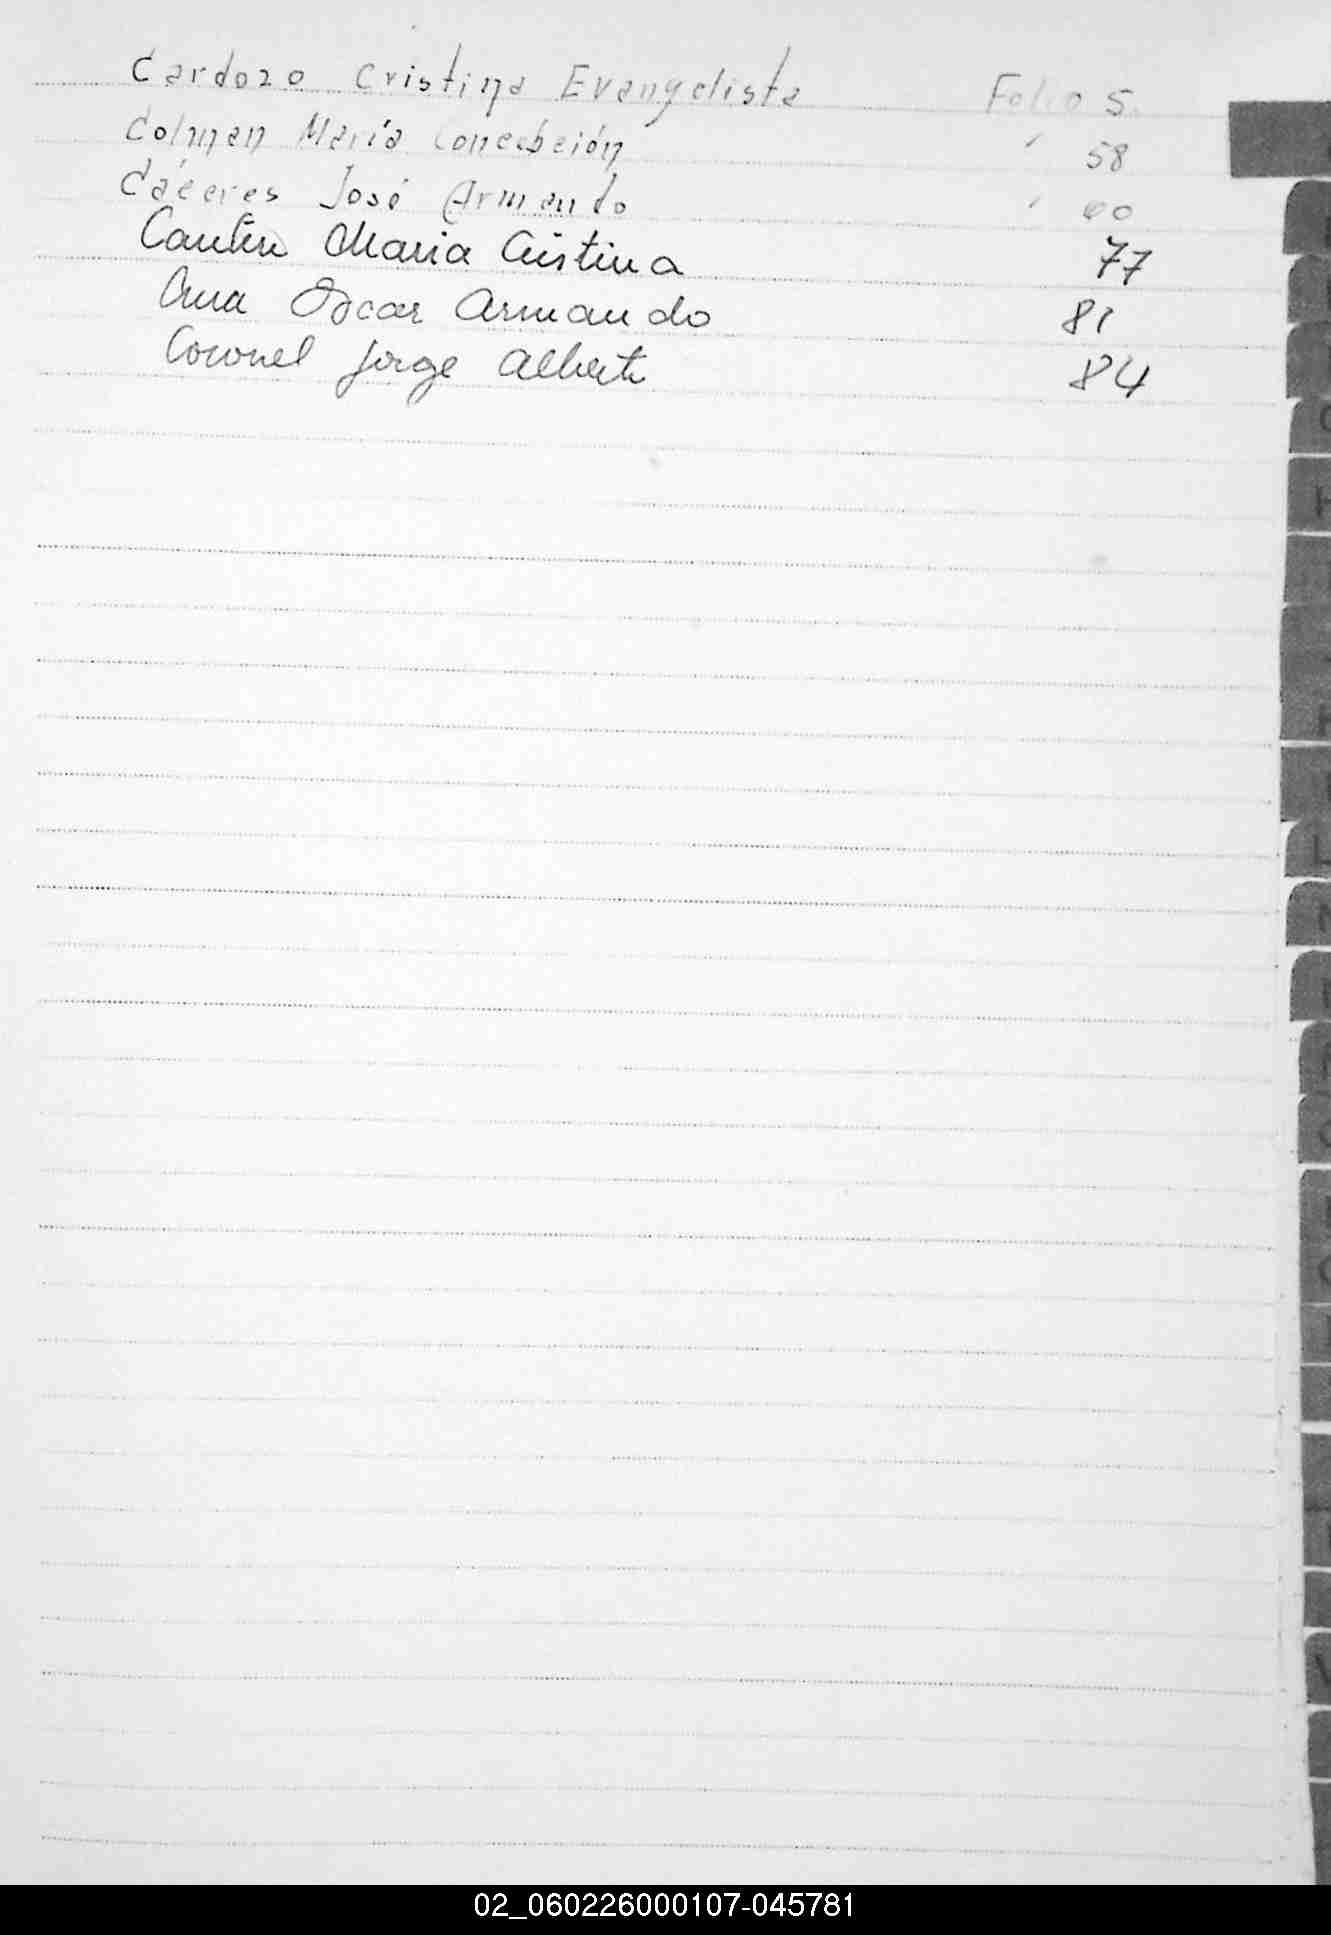 Cardozo Cristina Evangelista Folio 5
Colman María Concebción " 58
Cáceres José Armando " 60
María Cristina 77
Oscar Armando 81
Coronel Jorge Alberto 84
02_060226000107-045781